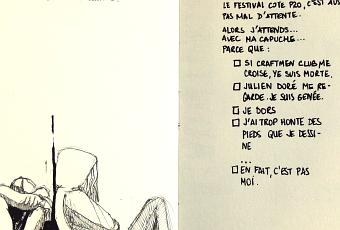 LE FESTIVAL COTE P20, C'EST AUS
PAS MAL D'ATTENTE.
ALORS J'ATTENDS...
AVEC MA CAPUCHE...
PARCE QUE :
SI CRAFTMEN CLUB ME
CROISE, YE SUIS MORTE.
JULIEN DORÉ ME RE-
GARDE. JE SUIS GENÉE.
JE DORS
J'AI TROP HONTE DES
PIEDS QUE JE DESSI-
NE
...
EN FAIT, C'EST PAS
MOI.